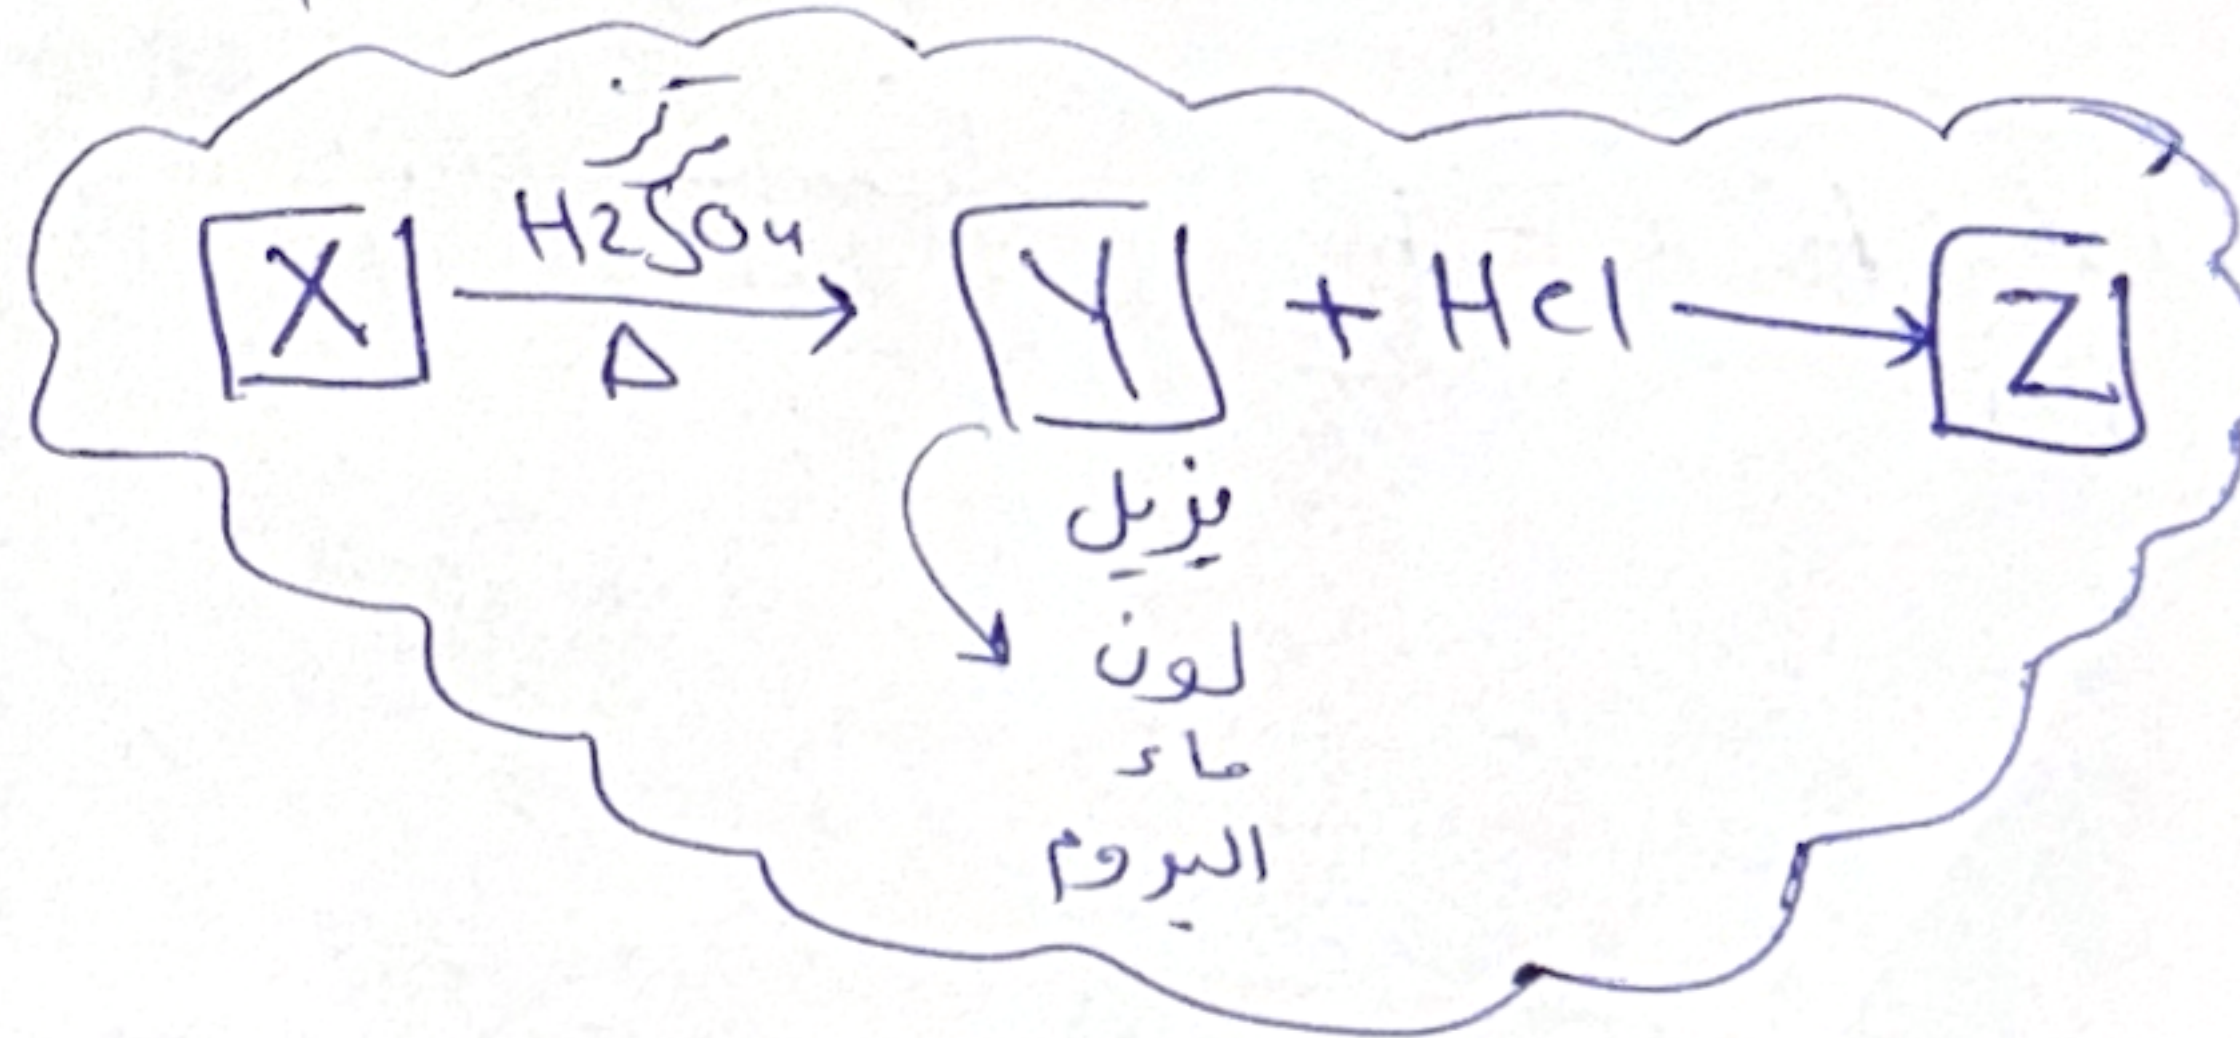 مركز
X H2SO4 Y + HCl Z
Δ
يزيل
لون
ماء
البروم